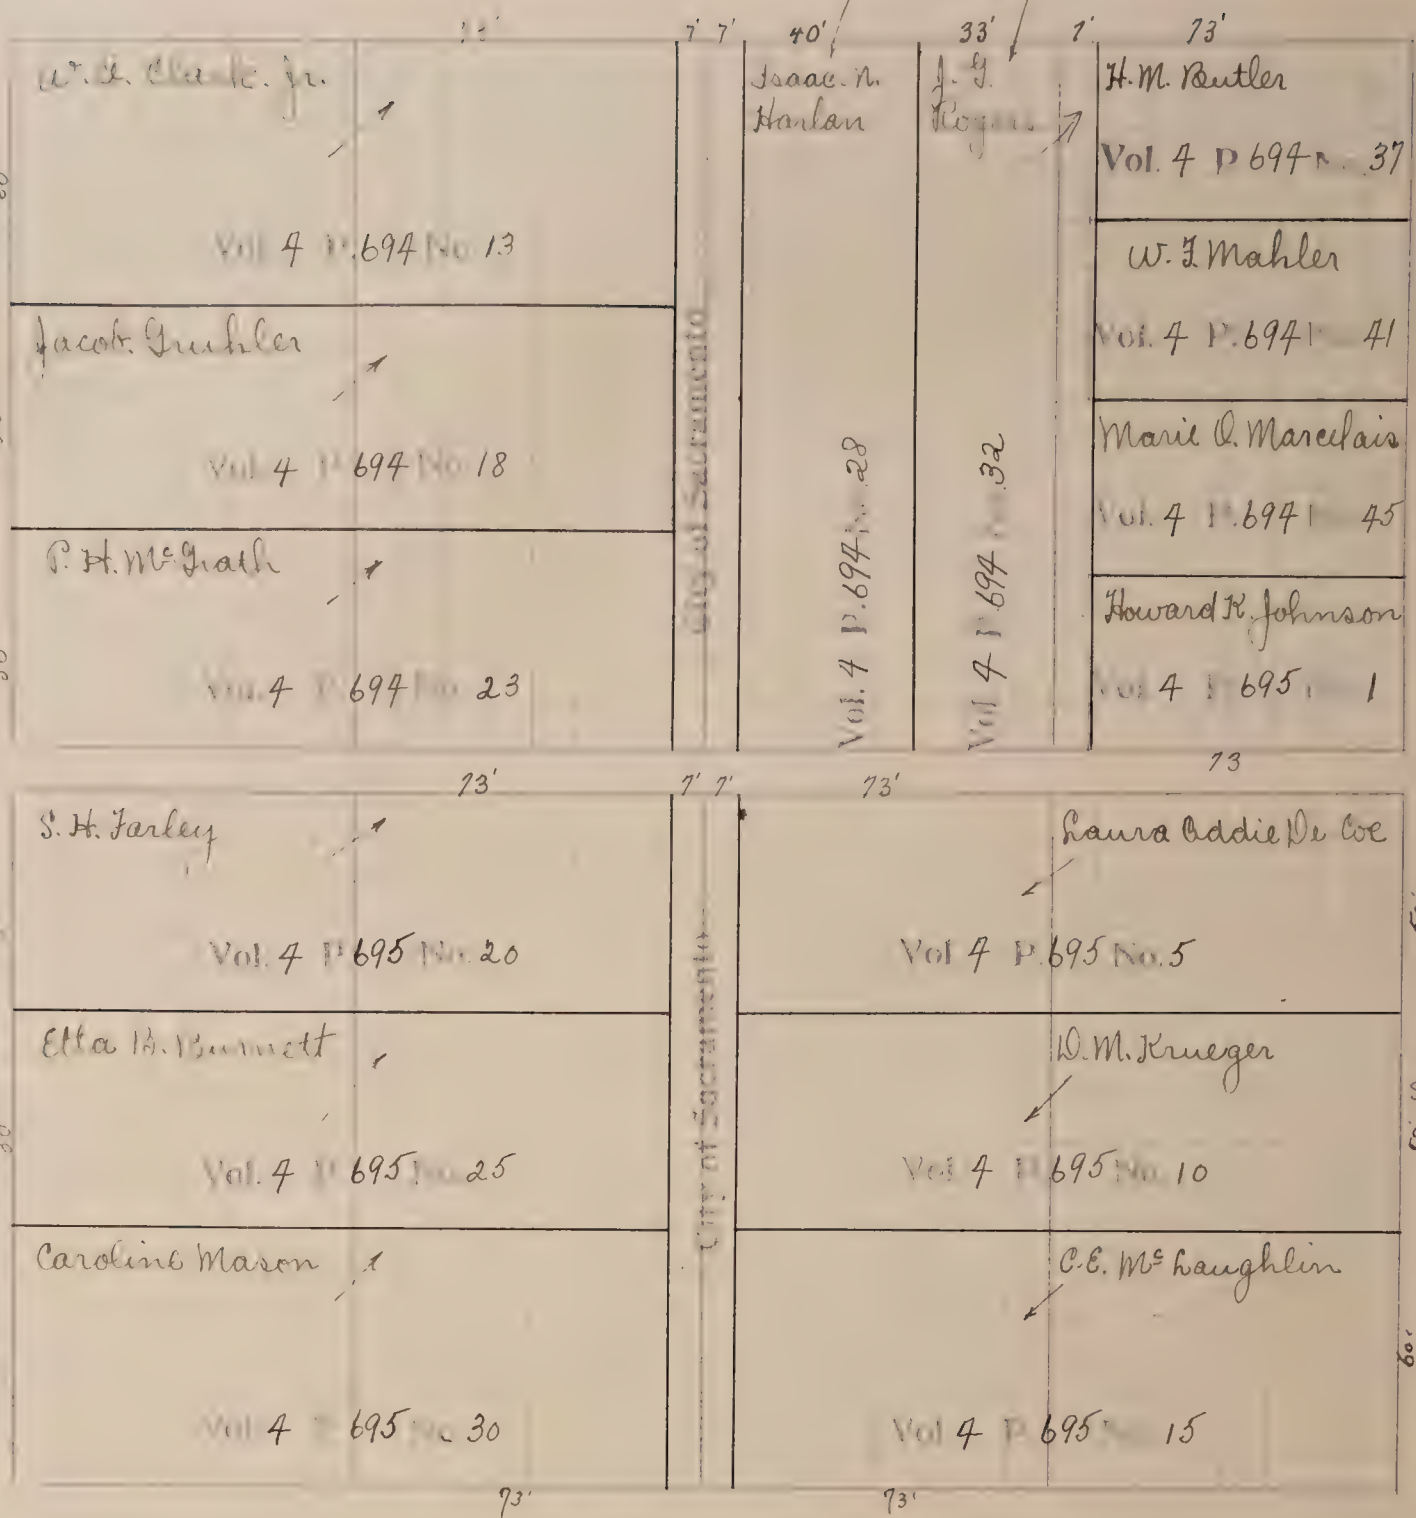 7' 7' 40' 33' 7' 73'
W. A. Clark. Jr.
Vol. 4 P. 694 No. 13
Jacob. Gruhler
Vol. 4 P. 694 No. 18
P. H. McGrath
Vol. 4 P. 694 No. 23
City of Sacramento
Isaac. N.
Harlan
Vol. 4 P. 694 No. 28
J. G.
Rogers
Vol. 4 P. 694 No. 32
H. M. Butler
Vol. 4 P. 694 37
W. F. Mahler
Vol. 4 P. 694 41
Marie O. Marcelais
Vol. 4 P. 694 45
Howard K. Johnson
Vol. 4 P. 695 1
73' 7' 7' 73' 73
S. H. Farley
Vol. 4 P. 695 No. 20
Etta B. Burnett
Vol. 4 P. 695 No. 25
Caroline Mason
Vol. 4 P. 695 No. 30
City of Sacramento
Laura Addie De Coe
Vol. 4 P. 695 No. 5
D. M. Krueger
Vol. 4 P. 695 No. 10
C. E. McLaughlin
Vol. 4 P. 695 No. 15
60'
73' 73'